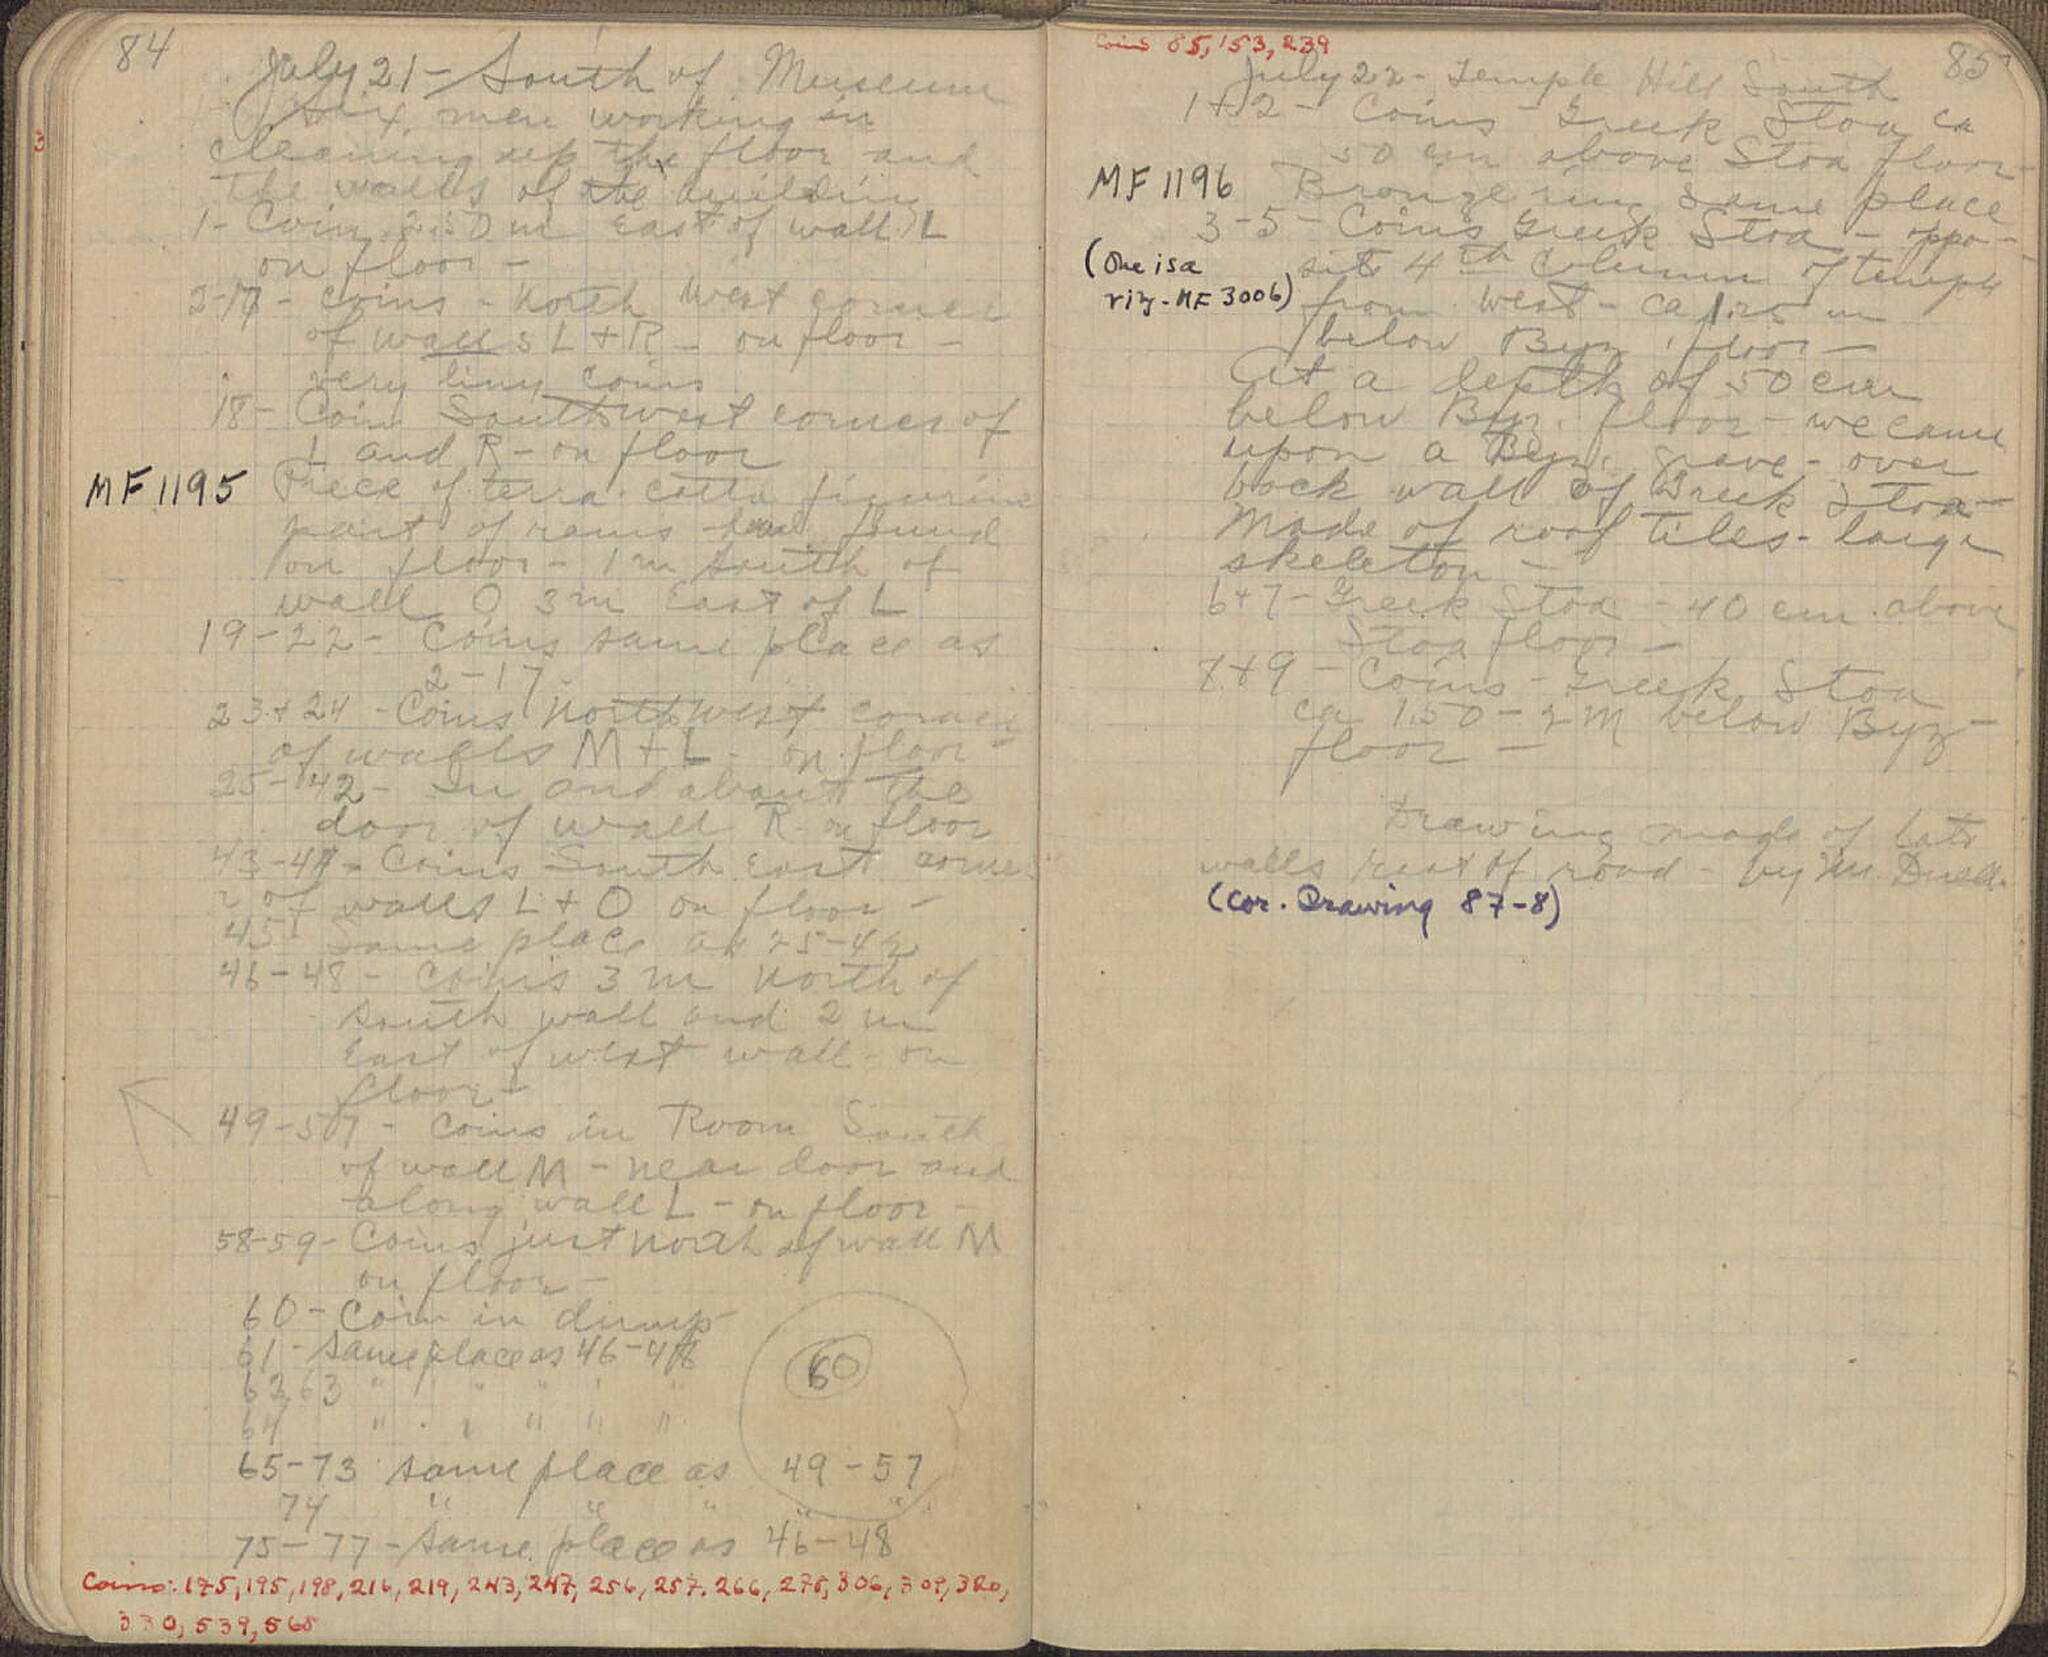 84
July 21 - South of Museum
Six men working in
cleaning up the floor and
the walls of the building
1 - Coin 2.50 m East of wall L
on floor -
2-17 - coins - North West corner
of walls L + R - on floor -
very tiny coins
18 - Coin Southwest corner of
L and R - on floor
MF 1195 Piece of terra cotta figurine
part of rams head found
on floor - 1 m south of
wall O 3 m East of L
19-22 - Coins same place as
2-17
23 + 24 - Coins Northwest corner
of walls M + L - on floor -
25-42 - In and about the
door of wall R - on floor
43-44 - Coins South East corne
r of walls L + O on floor -
45 - Same place as 25-42
46-48 - Coins 3 m North of
south wall and 2 m
East of west wall - on
floor -
49-57 - Coins in Room South
of wall M - near door and
along wall L - on floor -
58-59 - Coins just North of wall M
on floor -
60 - Coin in dump
61 - Same place as 46-48
62,63 " " " " "
64 " " " " "
60
65-73 same place as 49-57
74 " " " " "
75-77 - Same place as 46-48
Coins: 175, 195, 198, 216, 219, 243, 247, 256, 257, 266, 275, 306, 309, 320,
330, 539, 568
3
Coins 85, 153, 239
85
July 22 - Temple Hill South
1+2 - Coins - Greek Stoa ca
50 cm above Stoa floor -
MF 1196 Bronze ring same place
3-5 - Coins Greek Stoa - oppo-
(One is a site 4th Column of temple
riz - MF 3006) from West - ca 1.25 m
below Byz. floor -
At a depth of 50 cm
below Byz. floor - we came
upon a Byz. grave - over
back wall of Greek Stoa -
Made of roof tiles - large
skeleton -
6+7 - Greek Stoa - 40 cm. above
Stoa floor -
8+9 - Coins - Greek Stoa
ca 1.50 - 2 M below Byz -
floor -
Drawing made of late
walls East of road - by Mr. Duell.
(Cor. Drawing 87-8)